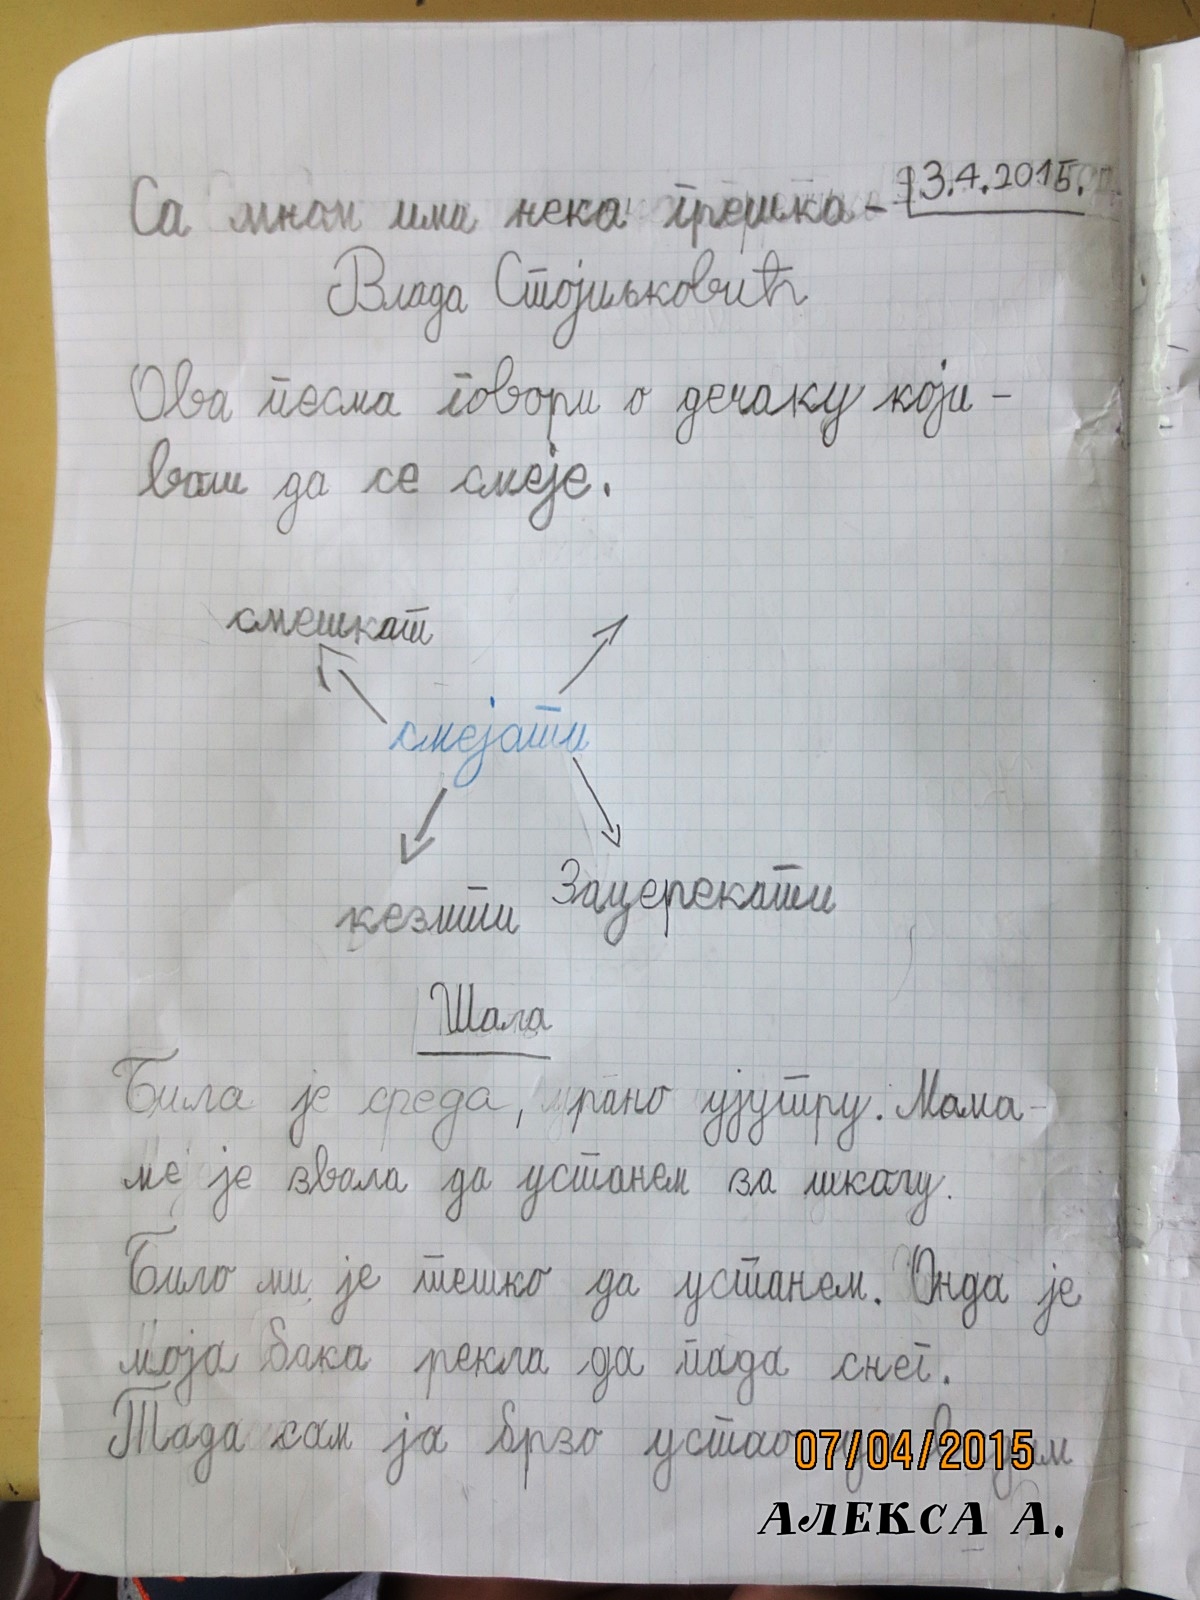 Са мном има нека грешка - 13.4.2015.
Влада Стојиљковић
Ова песма говори о дечаку који -
воли да се смеје.
смешкат
смејати
кезити Зацерекати
Шала
Била је среда, рано ујутру. Мама-
ме је звала да устанем за школу.
Било ми је тешко да устанем. Онда је
моја бака рекла да пада снег.
Тада сам ја брзо устао
07/04/2015
АЛЕКСА А.